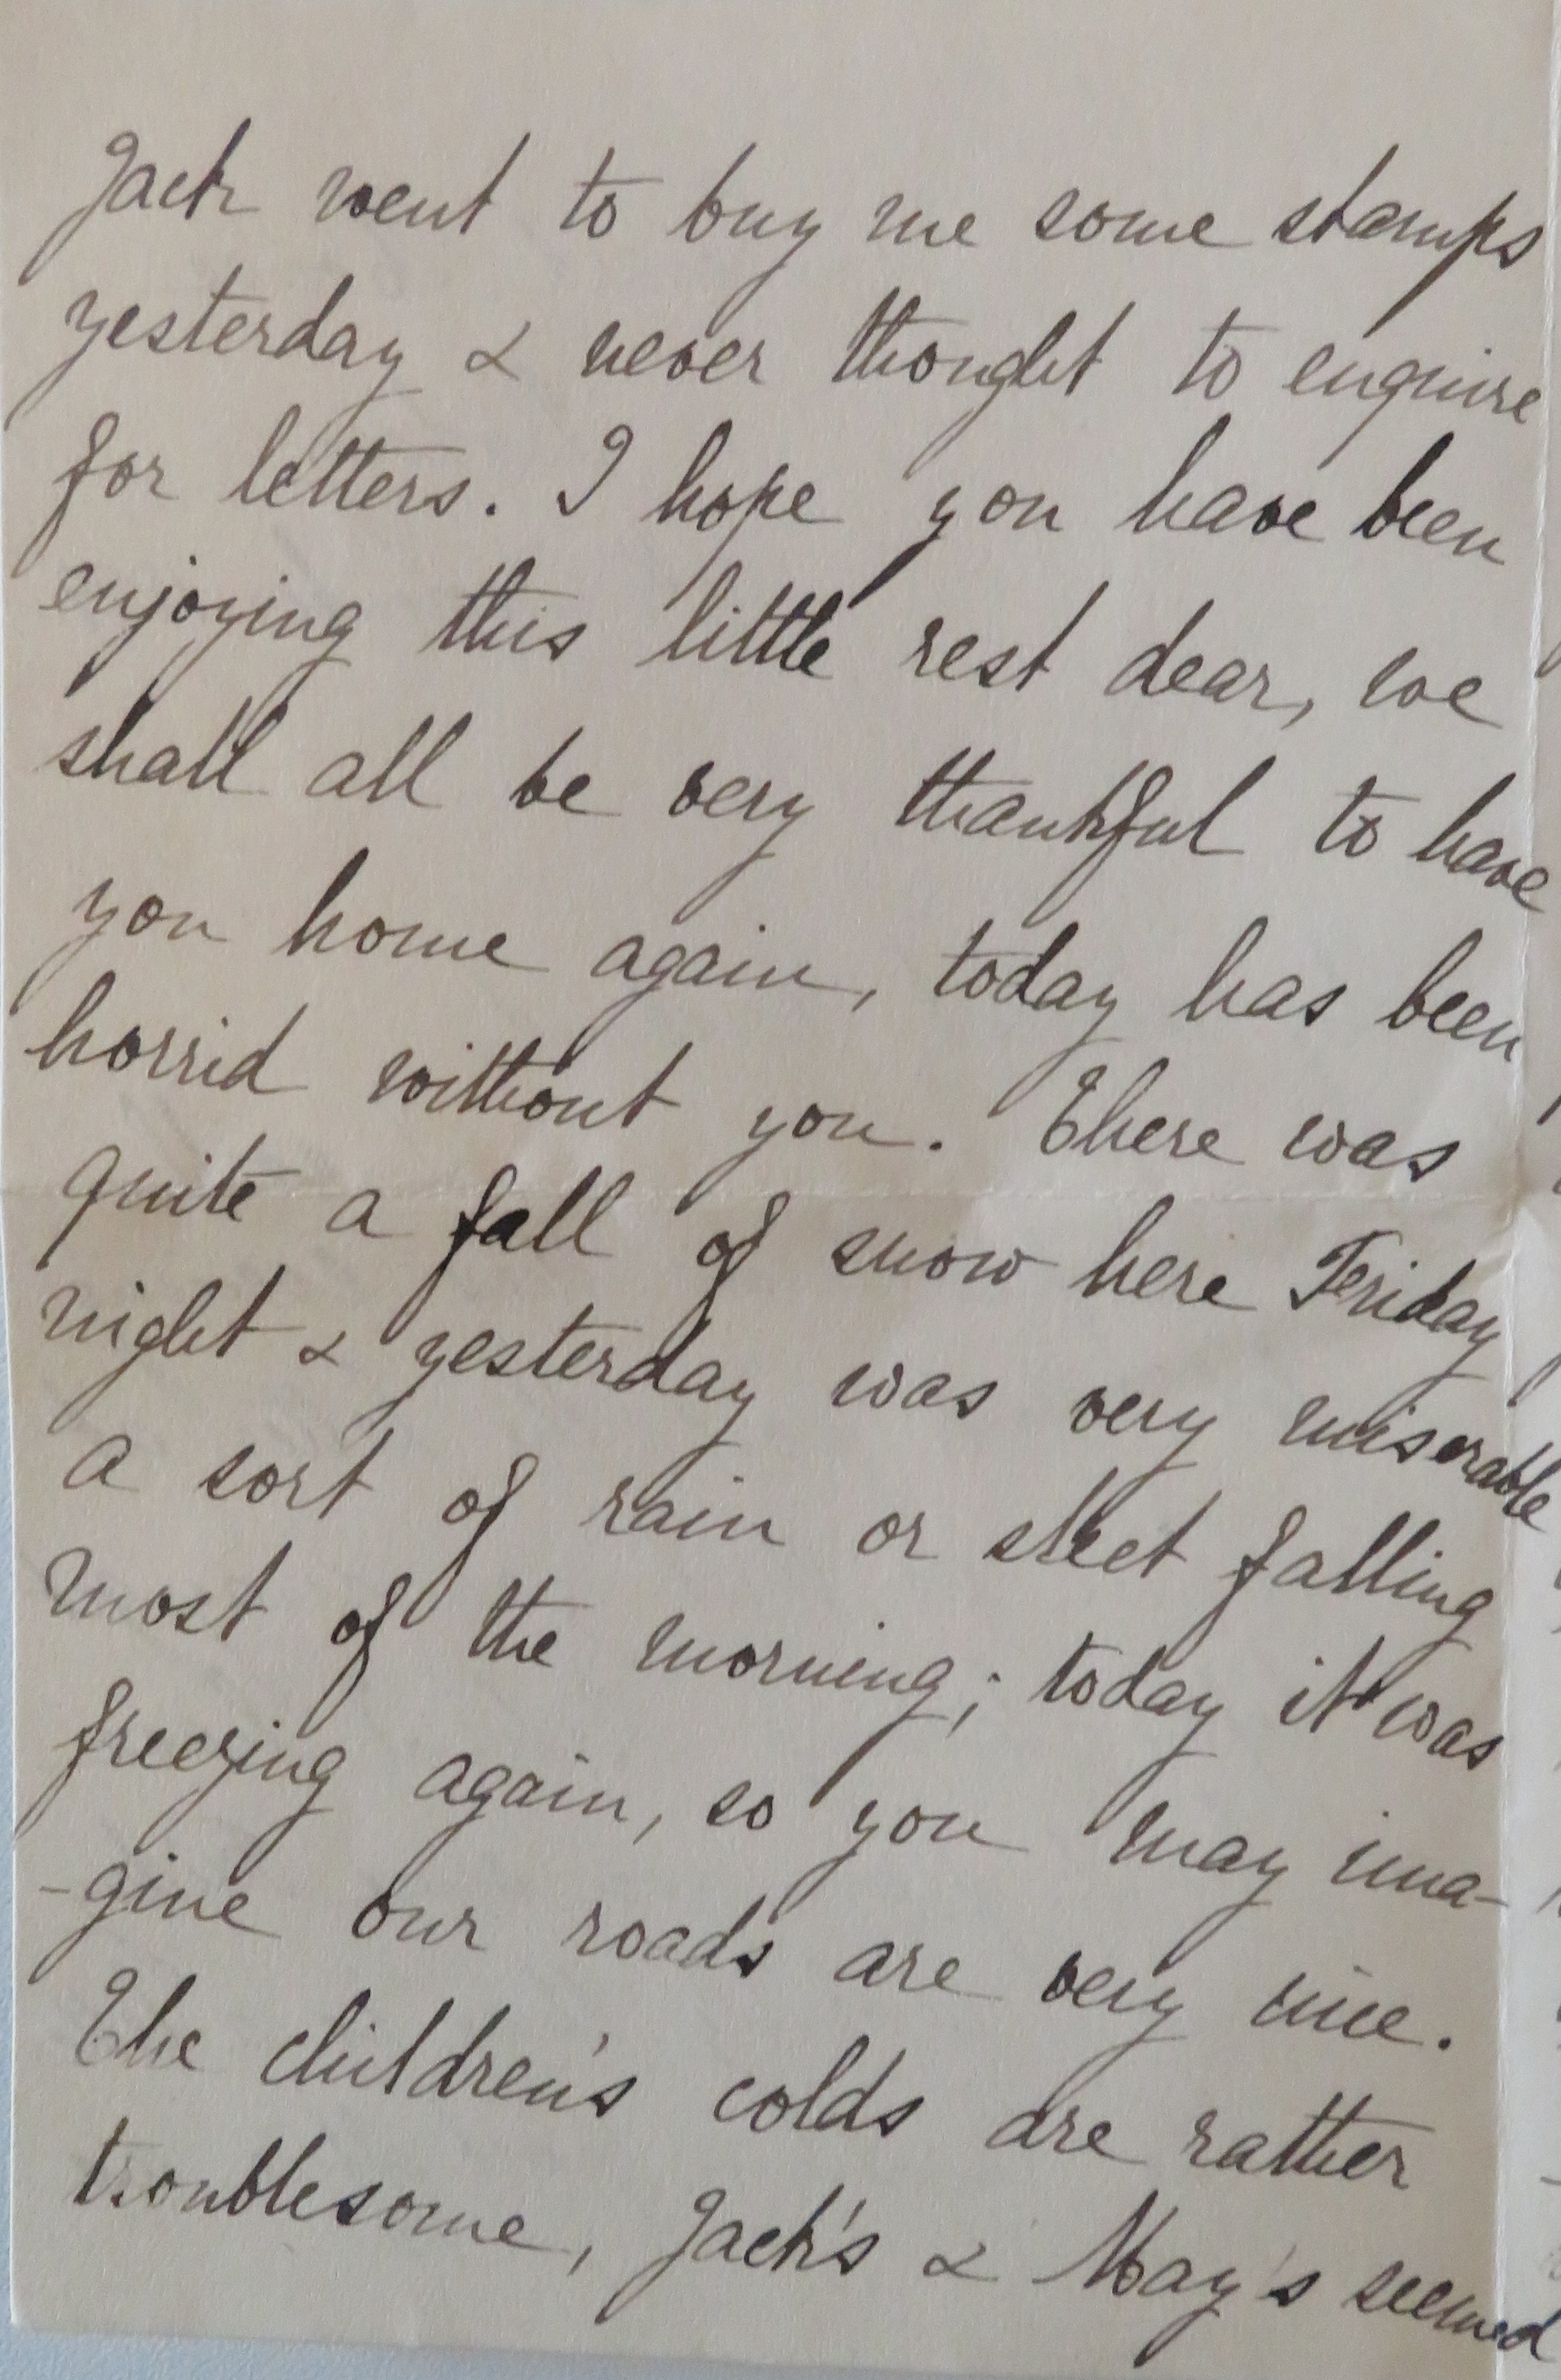 Jack went to buy me some stamps
yesterday & never thought to enquire
for letters. I hope you have been
enjoying this little rest dear, we
shall all be very thankful to have
you home again, today has been
horrid without you. There was
quite a fall of snow here Friday
night & yesterday was very miserable
a sort of rain or sleet falling
most of the morning; today it was
freezing again, so you may ima-
-gine our roads are very nice.
The children's colds are rather
troublesome, Jack's & May's seemed